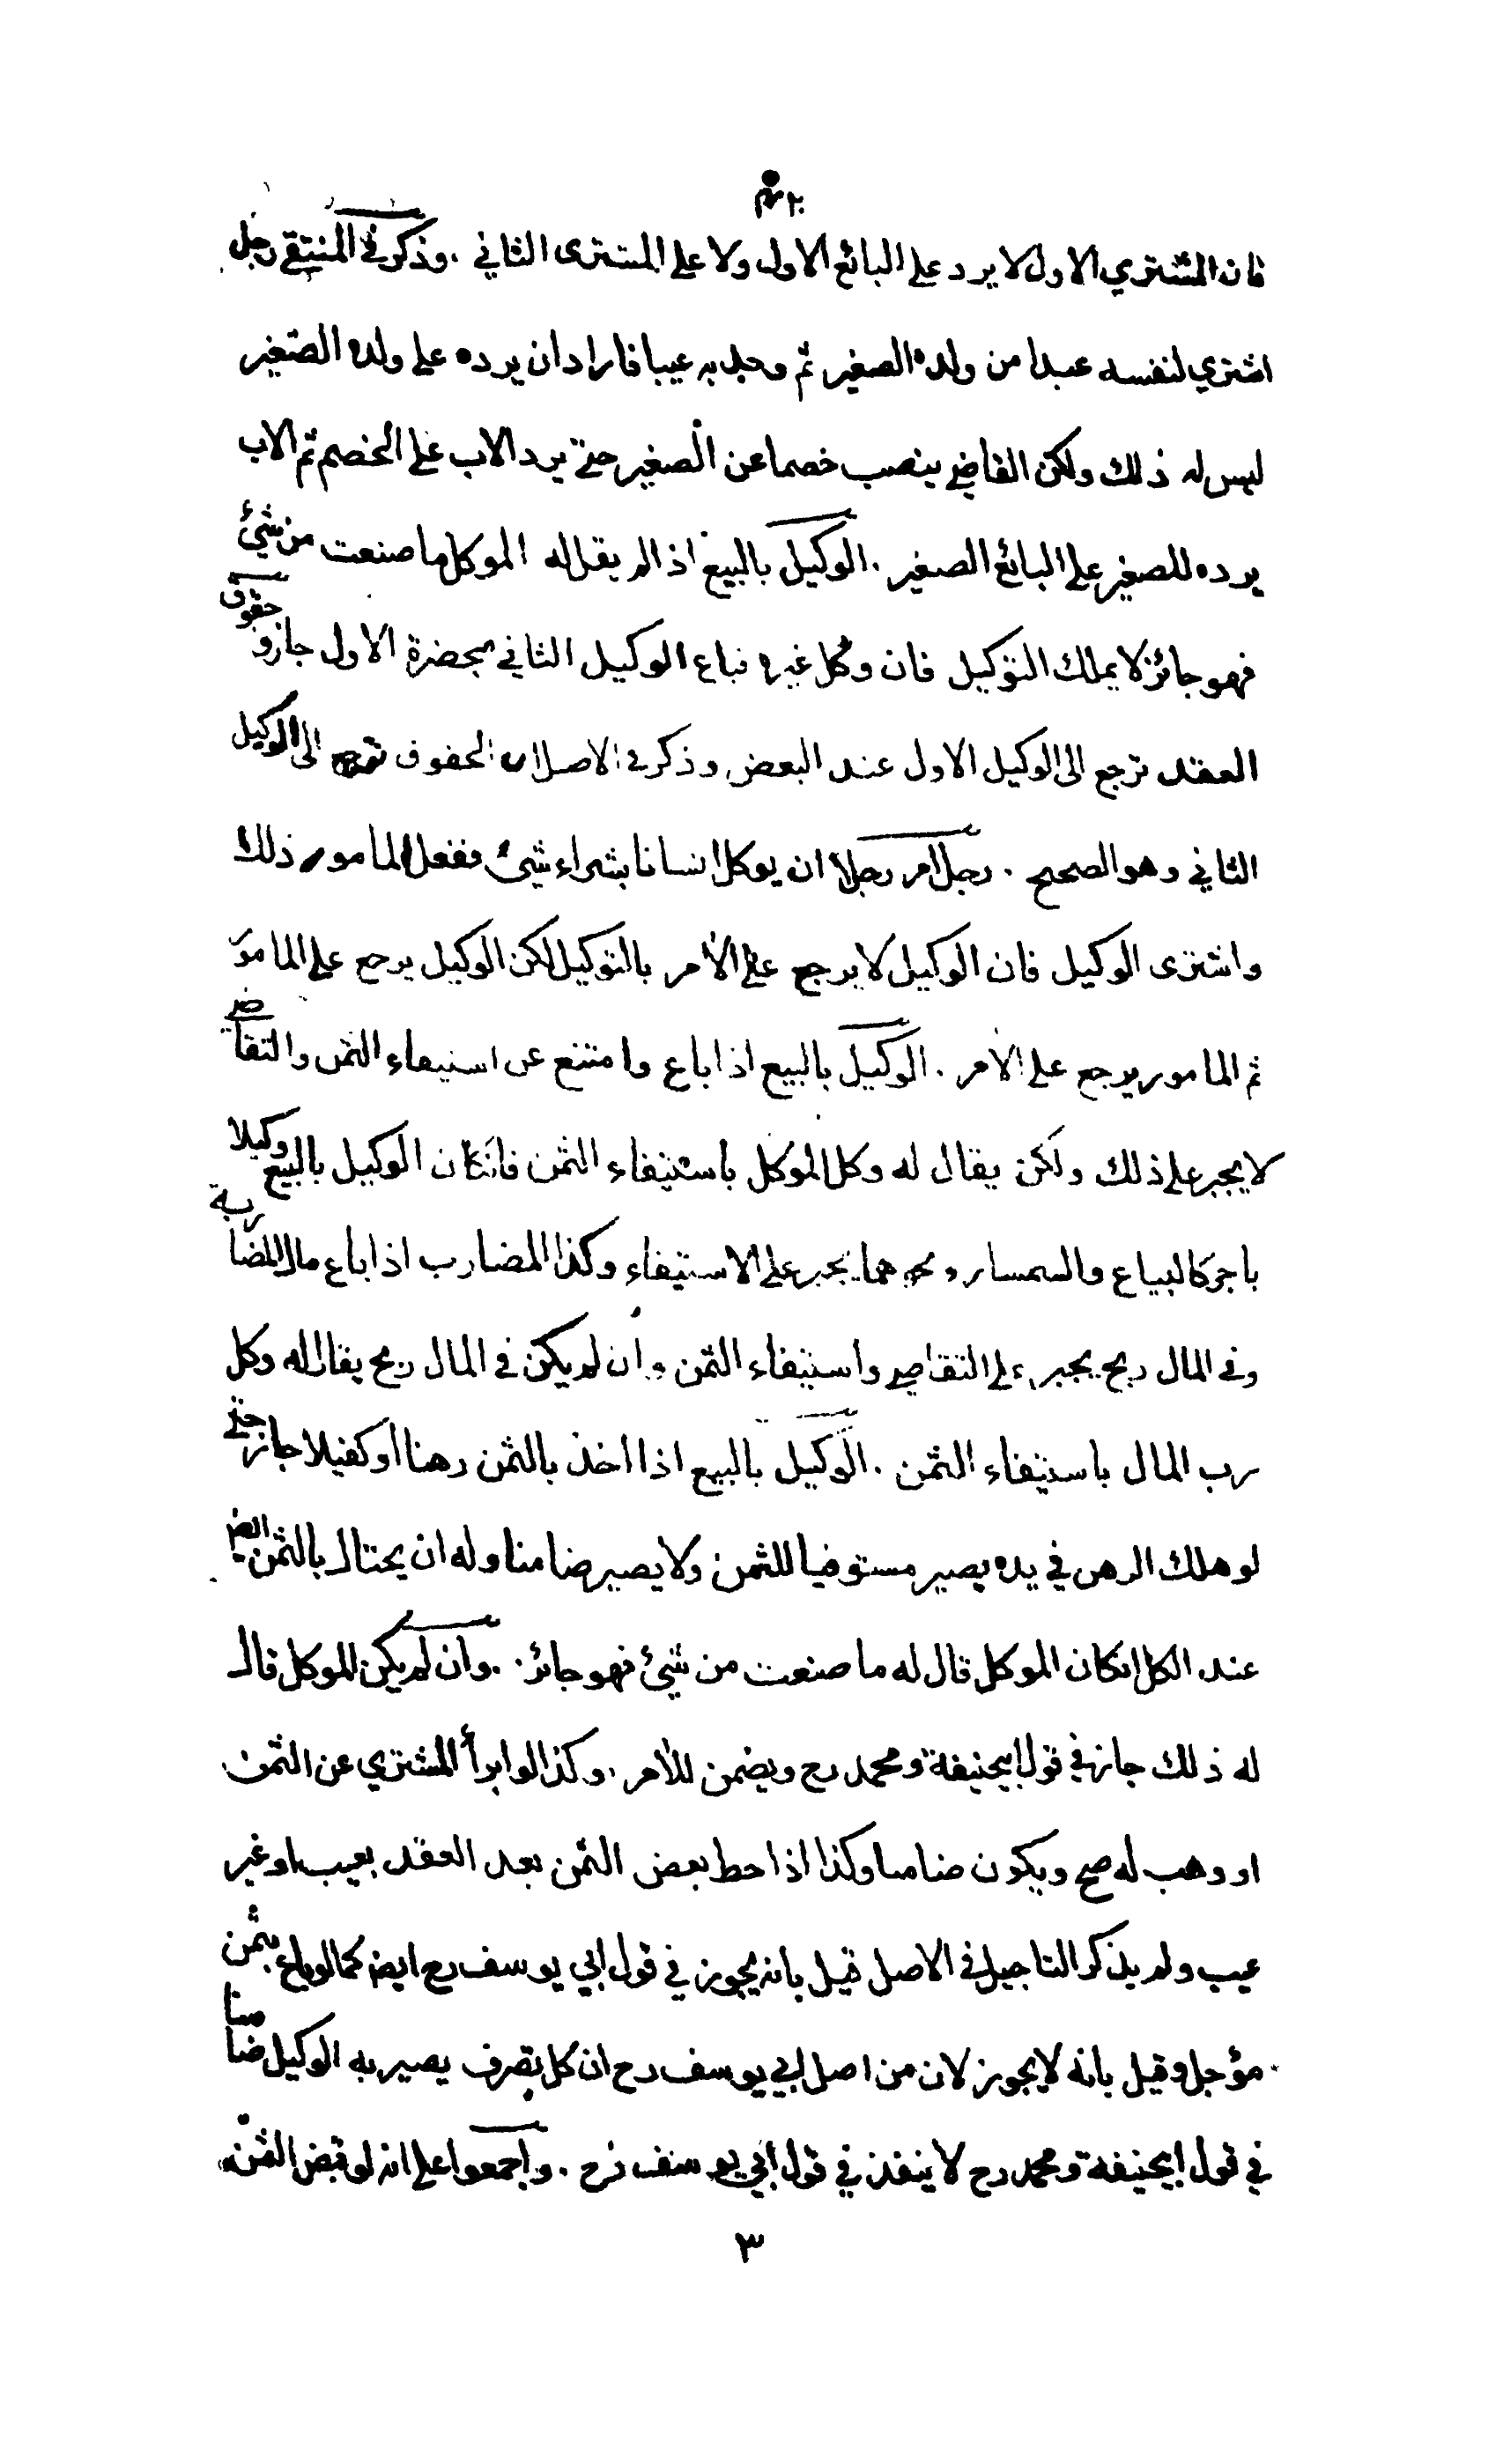 فان المشتري الاول لا يرد على البائع الاول ولا على المشترى الثاني . وذكر في المنتقى رجل
اشتري لنفسه عبدا من ولده الصغير ثم وجد به عيبا فاراد ان يرده على ولده الصغير
ليس له ذلك ولكن القاضي ينصب خصما عن الصغير حتى يرد الاب على الخصم ثم الاب
يرده للصغير على البائع الصغير . الوكيل بالبيع اذا لم يقل له الموكل ما صنعت من شيئ
فهو جائز لا يملك التوكيل فان وكل غيره فباع الوكيل الثاني بحضرة الاول جاز وحقوق
العقد ترجع الى الوكيل الاول عند البعض وذكر في الاصل ان الحقوق ترجع الى الوكيل
الثاني وهو الصحيح . رجل امر رجلا ان يوكل انسانا بشراء شيئ ففعل المامور ذلك
واشترى الوكيل فان الوكيل لا يرجع على الآمر بالتوكيل لكن الوكيل يرجع على المامور
ثم المامور يرجع على الآمر . الوكيل بالبيع اذا باع وامتنع عن استيفاء الثمن والتقاضي
لا يجبر على ذلك ولكن يقال له وكل الموكل باستيفاء الثمن فانكان الوكيل بالبيع وكيلا
باجر كالبياع والسمسار ونحوهما يجبر على الاستيفاء وكذا المضارب اذا باع مال المضاربة
وفي المال ربح يجبر على التقاضي واستيفاء الثمن وان لم يكن في المال ربح يقال له وكل
رب المال باستيفاء الثمن . الوكيل بالبيع اذا اخذ بالثمن رهنا او كفيلا جاز حتى
لو هلك الرهن في يده يصير مستوفيا للثمن ولا يصير ضامنا وله ان يحتال بالثمن ايضا
عند الكل انكان الموكل قال له ما صنعت من شيئ فهو جائز . وان لم يكن للموكل قال
له ذلك جاز في قول ابيحنيفة ومحمد رح ويضمن للآمر . وكذا لو ابرأ المشتري عن الثمن
او وهب له صح ويكون ضامنا وكذا اذا حط بعض الثمن بعد العقد بعيب او غير
عيب ولم يذكر التاجيل في الاصل قيل بانه يجوز في قول ابي يوسف رح ايضا كما لو باع بثمن
مؤجل وقيل بانه لا يجوز لان من اصل ابي يوسف رح ان كل تصرف يصير به الوكيل ضامنا
في قول ابيحنيفة ومحمد رح لا ينفذ في قول ابي يوسف رح . واجمعوا على انه لو قبض الثمن
٣